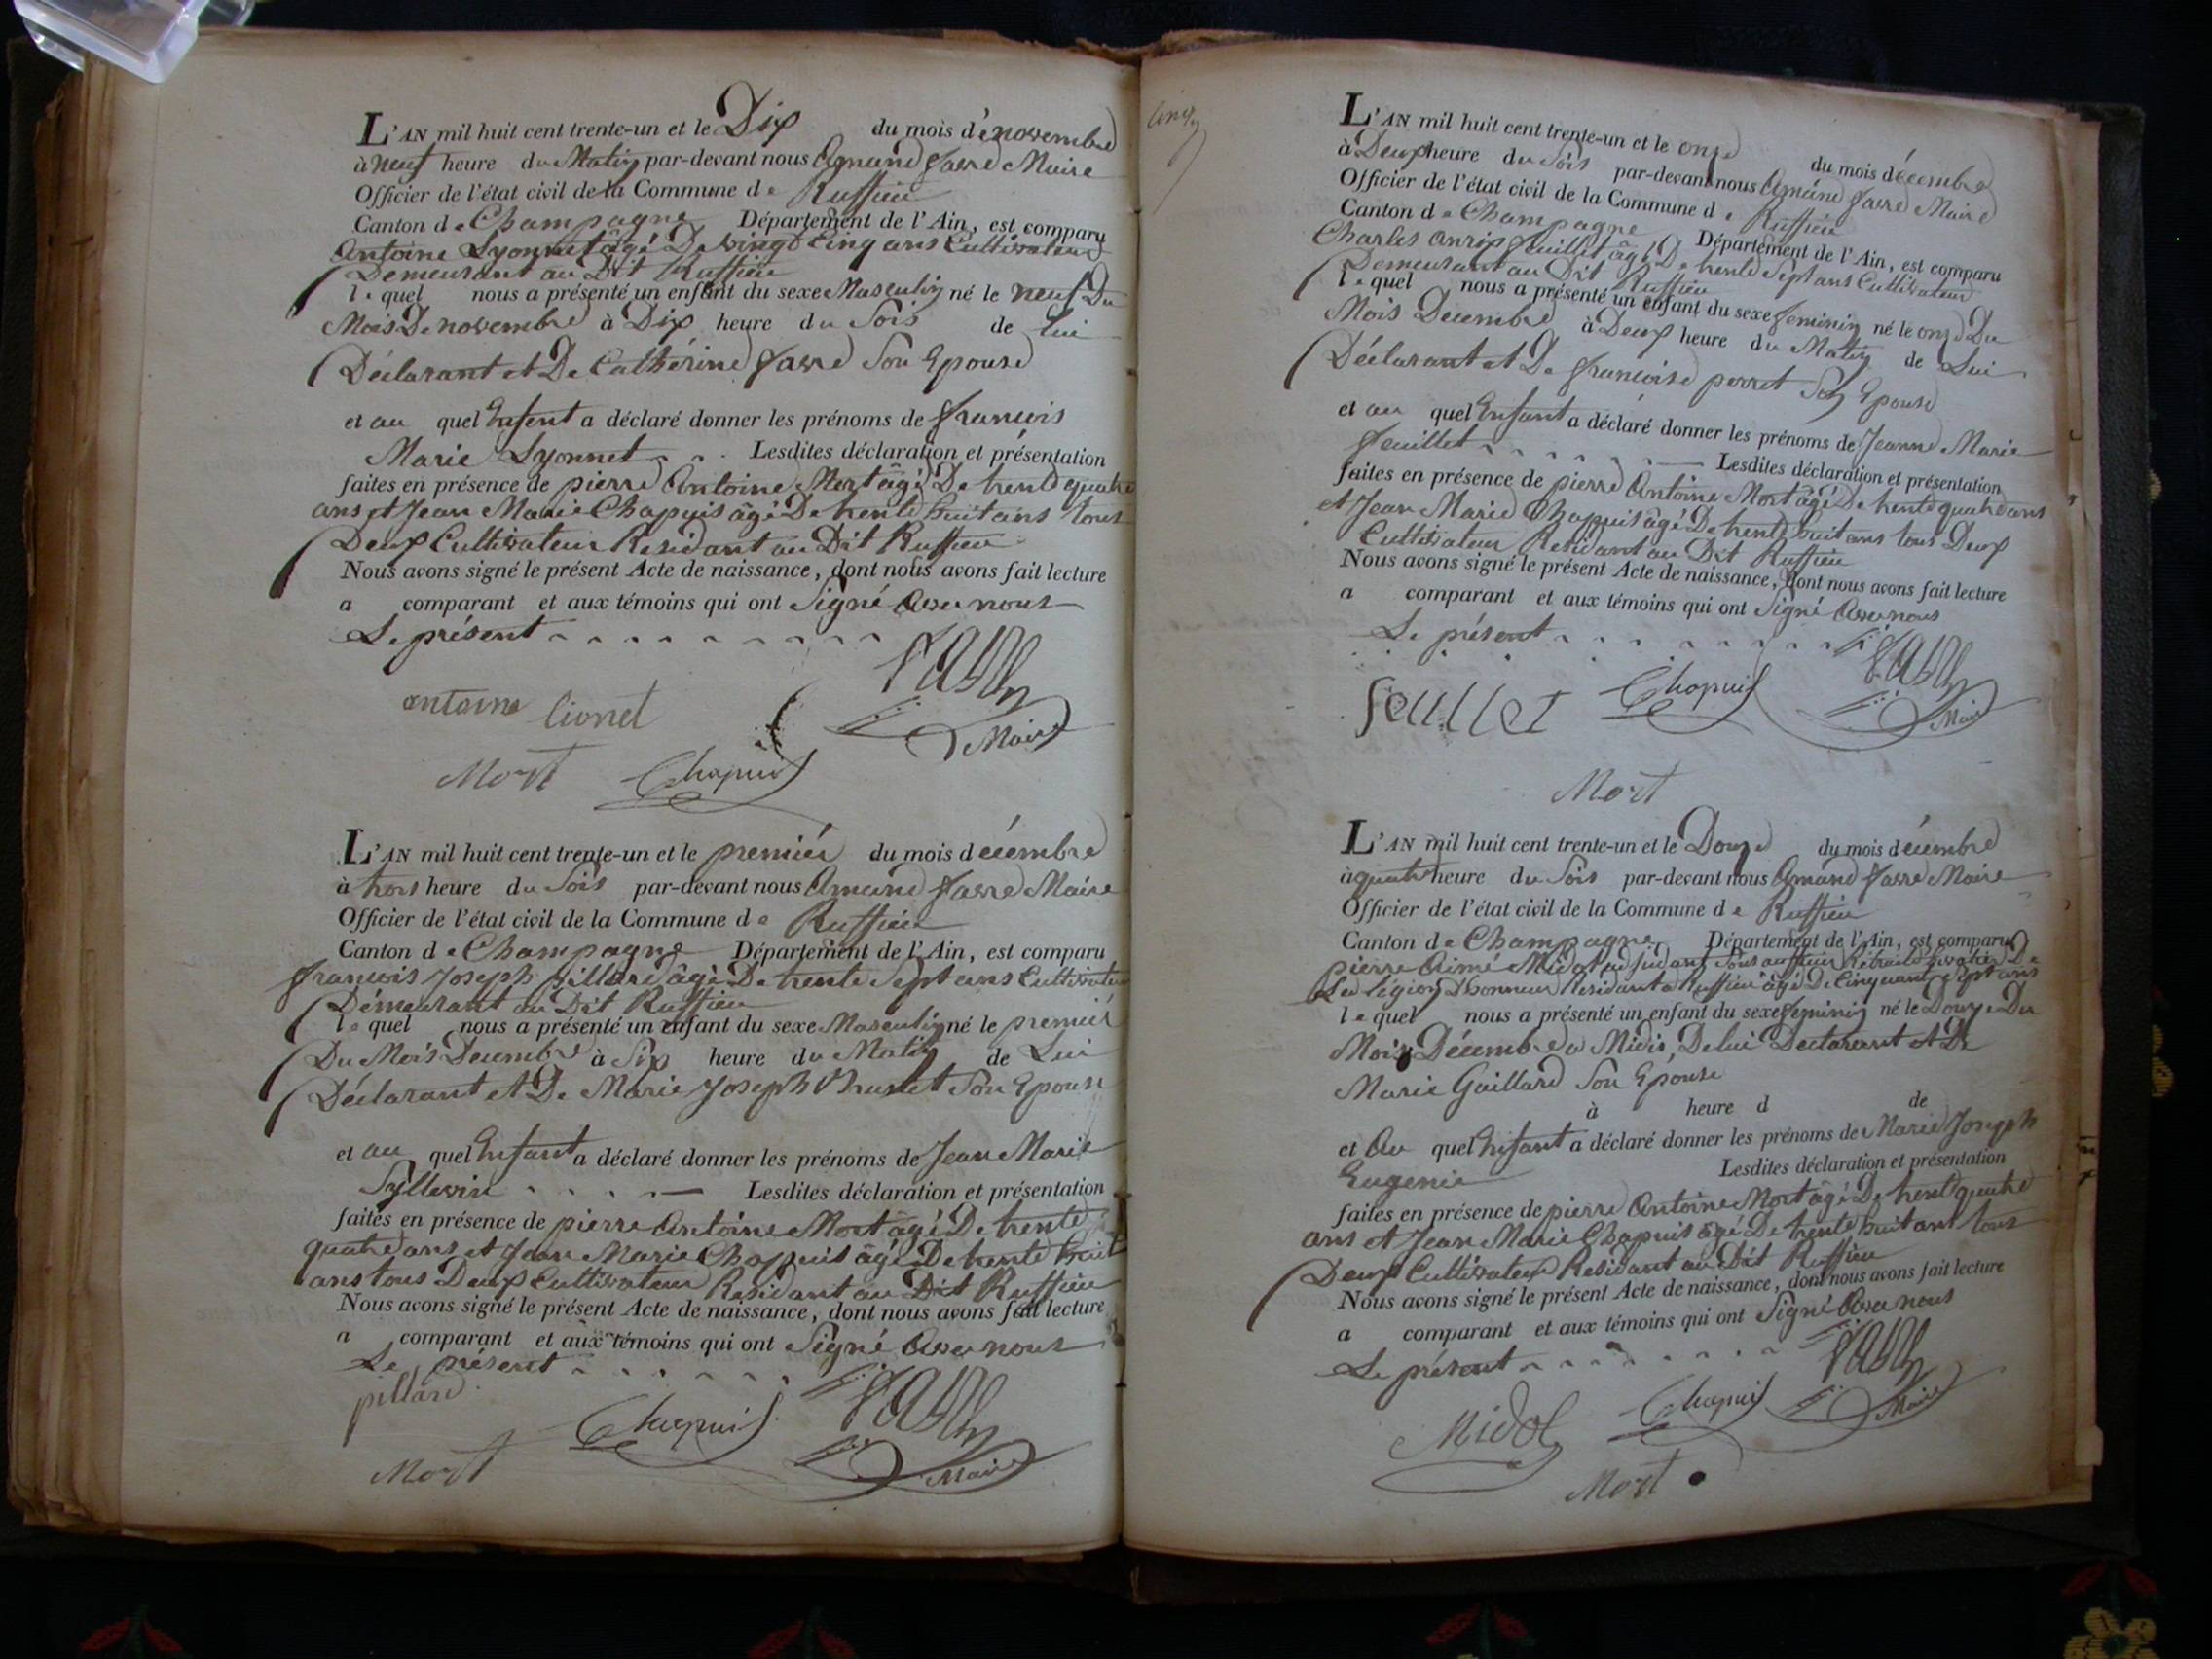 L'AN mil huit cent trente-un et le Dix du mois de novembre
à neuf heure du Matin par-devant nous Amand favre Maire
Officier de l'état civil de la Commune de Ruffieu
Canton de Champagne Département de l'Ain, est comparu
Antoine Lyonnet âgé De vingt Cinq ans Cultivateur
Demeurant au Dit Ruffieu
lequel nous a présenté un enfant du sexe Masculin né le neuf Du
Mois De novembre à Dix heure du Soir de lui
Déclarant et De Cathérine favre Son Epouse
et au quel Enfent a déclaré donner les prénoms de francois
Marie Lyonnet Lesdites déclaration et présentation
faites en présence de pierre Antoine Mort âgé De trente quatre
ans et Jean Marie Chapuis âgé De trente huit ans tous
Deux Cultivateur Residant au Dit Ruffieu
Nous avons signé le présent Acte de naissance, dont nous avons fait lecture
a comparant et aux témoins qui ont Signé Avec nous
Le présent
antoine lionet
Maire
Mort Chapuis
L'AN mil huit cent trente-un et le premiér du mois décémbre
à trois heure du Soir par-devant nous Amand favre Maire
Officier de l'état civil de la Commune de Ruffieu
Canton de Champagne Département de l'Ain, est comparu
francois Joseph pillard âgé De trente Sept ans Cultivateur
Démeurant au Dit Ruffieu
lequel nous a présenté un enfant du sexe Masculin né le premiér
Du Mois Decembre à Six heure du Matin de Lui
Déclarant et De Marie Joseph Son Epouse
et au quel Enfant a déclaré donner les prénoms de Jean Marie
Lesdites déclaration et présentation
faites en présence de pierre Antoine Mort âgé De trente
quatre ans et Jean Marie Chapuis âgé De trente huit
ans tous Deux Cultivateur Residant au Dit Ruffieu
Nous avons signé le présent Acte de naissance, dont nous avons fait lecture
a comparant et aux témoins qui ont Signé Avec nous
Le présent
pillard
Chapuis
Mort Maire
L'AN mil huit cent trente-un et le onze du mois décembre
à Deux heure du Soir par-devant nous Amand favre Maire
Officier de l'état civil de la Commune de Ruffieu
Canton de Champagne Département de l'Ain, est comparu
Charles feuillet âgé De trente Sept ans Cultivateur
Demeurant au Dit Ruffieu
lequel nous a présenté un enfant du sexe feminin né le onze Du
Mois Decembre à Deux heure du Matin de Lui
Déclarant et De francoise perret Son Epouse
et au quel Enfant a déclaré donner les prénoms de Jeanne Marie
feuillet Lesdites déclaration et présentation
faites en présence de pierre Antoine Mort âgé De trente quatre ans
et Jean Marie Chapuis âgé De trente huit ans tous Deux
Cultivateur Residant au Dit Ruffieu
Nous avons signé le présent Acte de naissance, dont nous avons fait lecture
a comparant et aux témoins qui ont Signé Avec nous
Le présent
feuillet Chapuis Maire
Mort
L'AN mil huit cent trente-un et le Douze du mois décémbre
à quatre heure du Soir par-devant nous Amand favre Maire
Officier de l'état civil de la Commune de Ruffieu
Canton de Champagne Département de l'Ain, est comparu
pierre Aimé Midol De
La légion Dhonneur Residant a Ruffieu âgé De Cinquante Sept ans
lequel nous a présenté un enfant du sexe feminin né le Douze Du
Mois Décembre a Midis, De lui Declarant et De
Marie Gaillard Son Epouse
à heure d de
et Au quel Enfant a déclaré donner les prénoms de Marie Joseph
Eugenie Lesdites déclaration et présentation
faites en présence de pierre Antoine Mort âgé De trente quatre
ans et Jean Marie Chapuis âgé De trente huit ans tous
Deux Cultivateur Residant au Dit Ruffieu
Nous avons signé le présent Acte de naissance, dont nous avons fait lecture
a comparant et aux témoins qui ont Signé Avec nous
Le présent
Midol Chapuis Maire
Mort